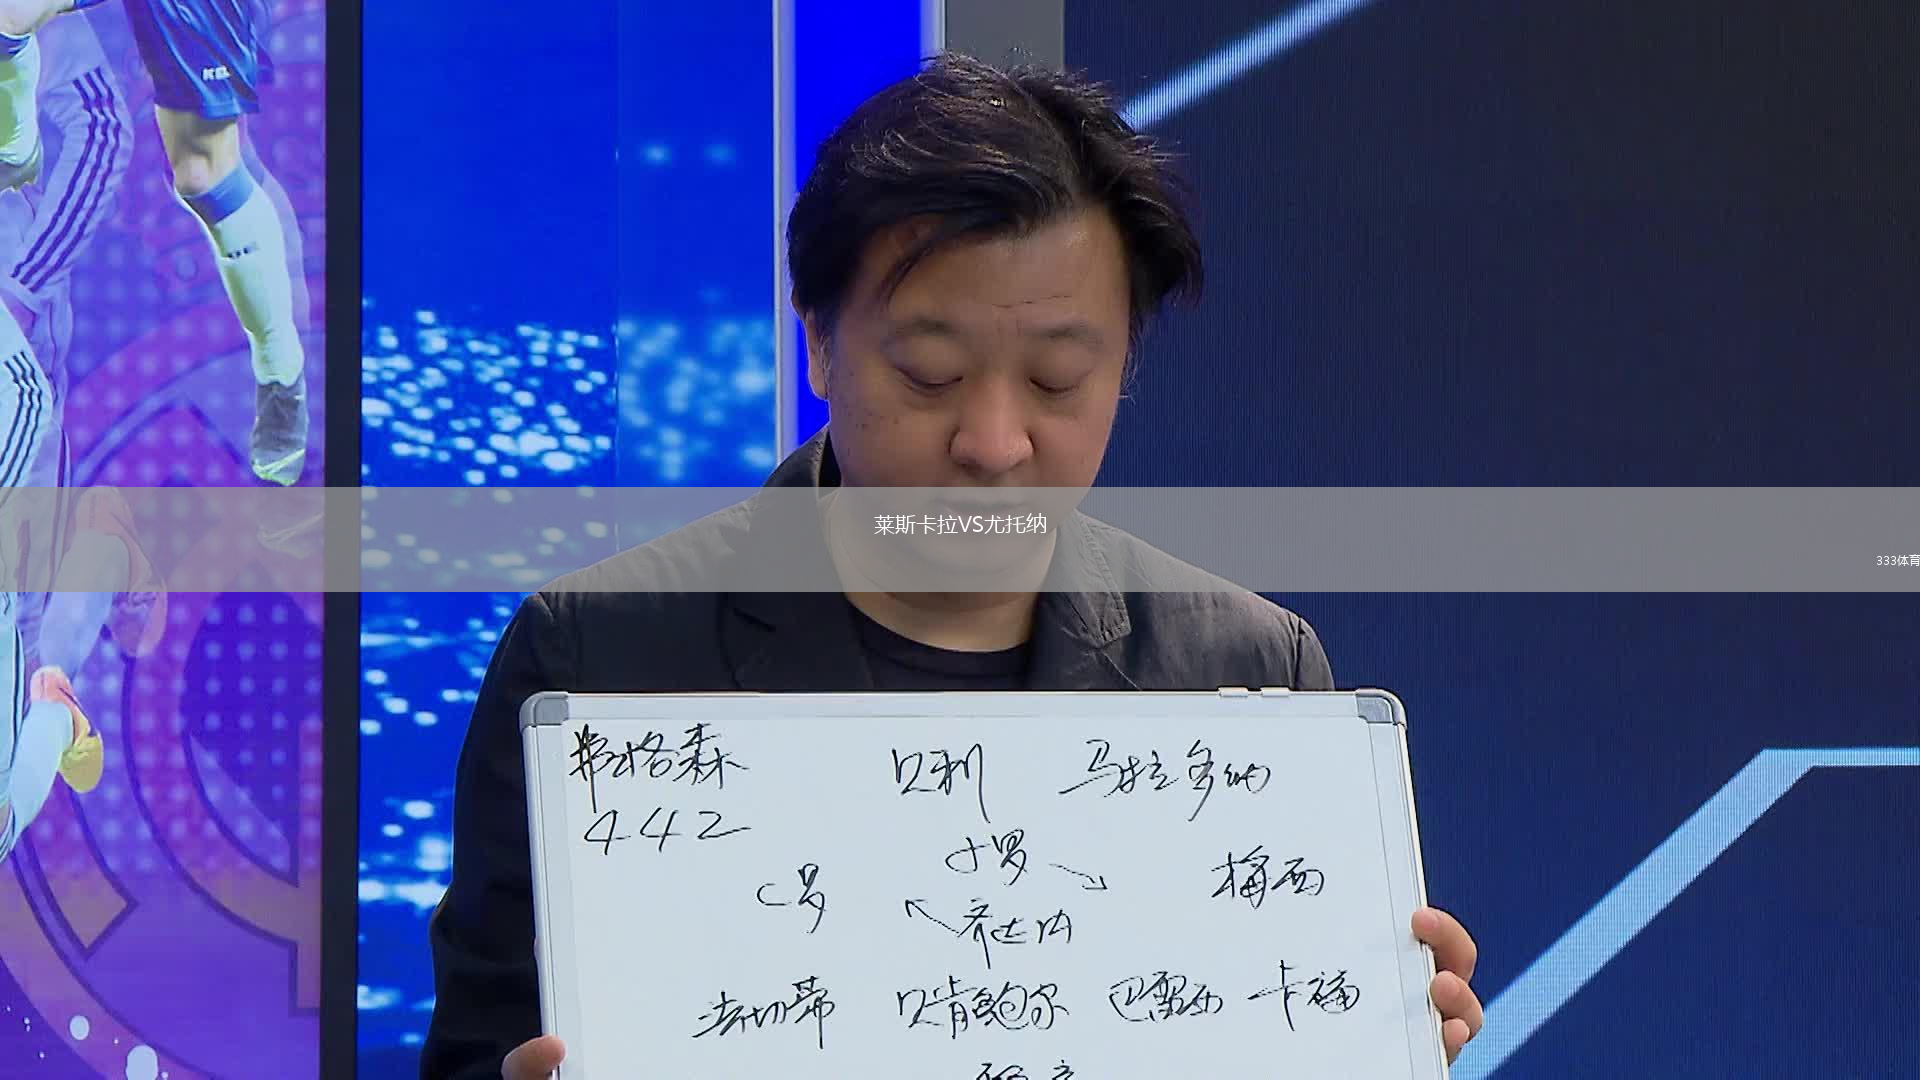 莱斯卡拉VS尤托纳
333体育
弗格森 贝利 马拉多纳
442
小罗
C罗 梅西
齐达内
法切蒂 贝肯鲍尔 巴雷西 卡福